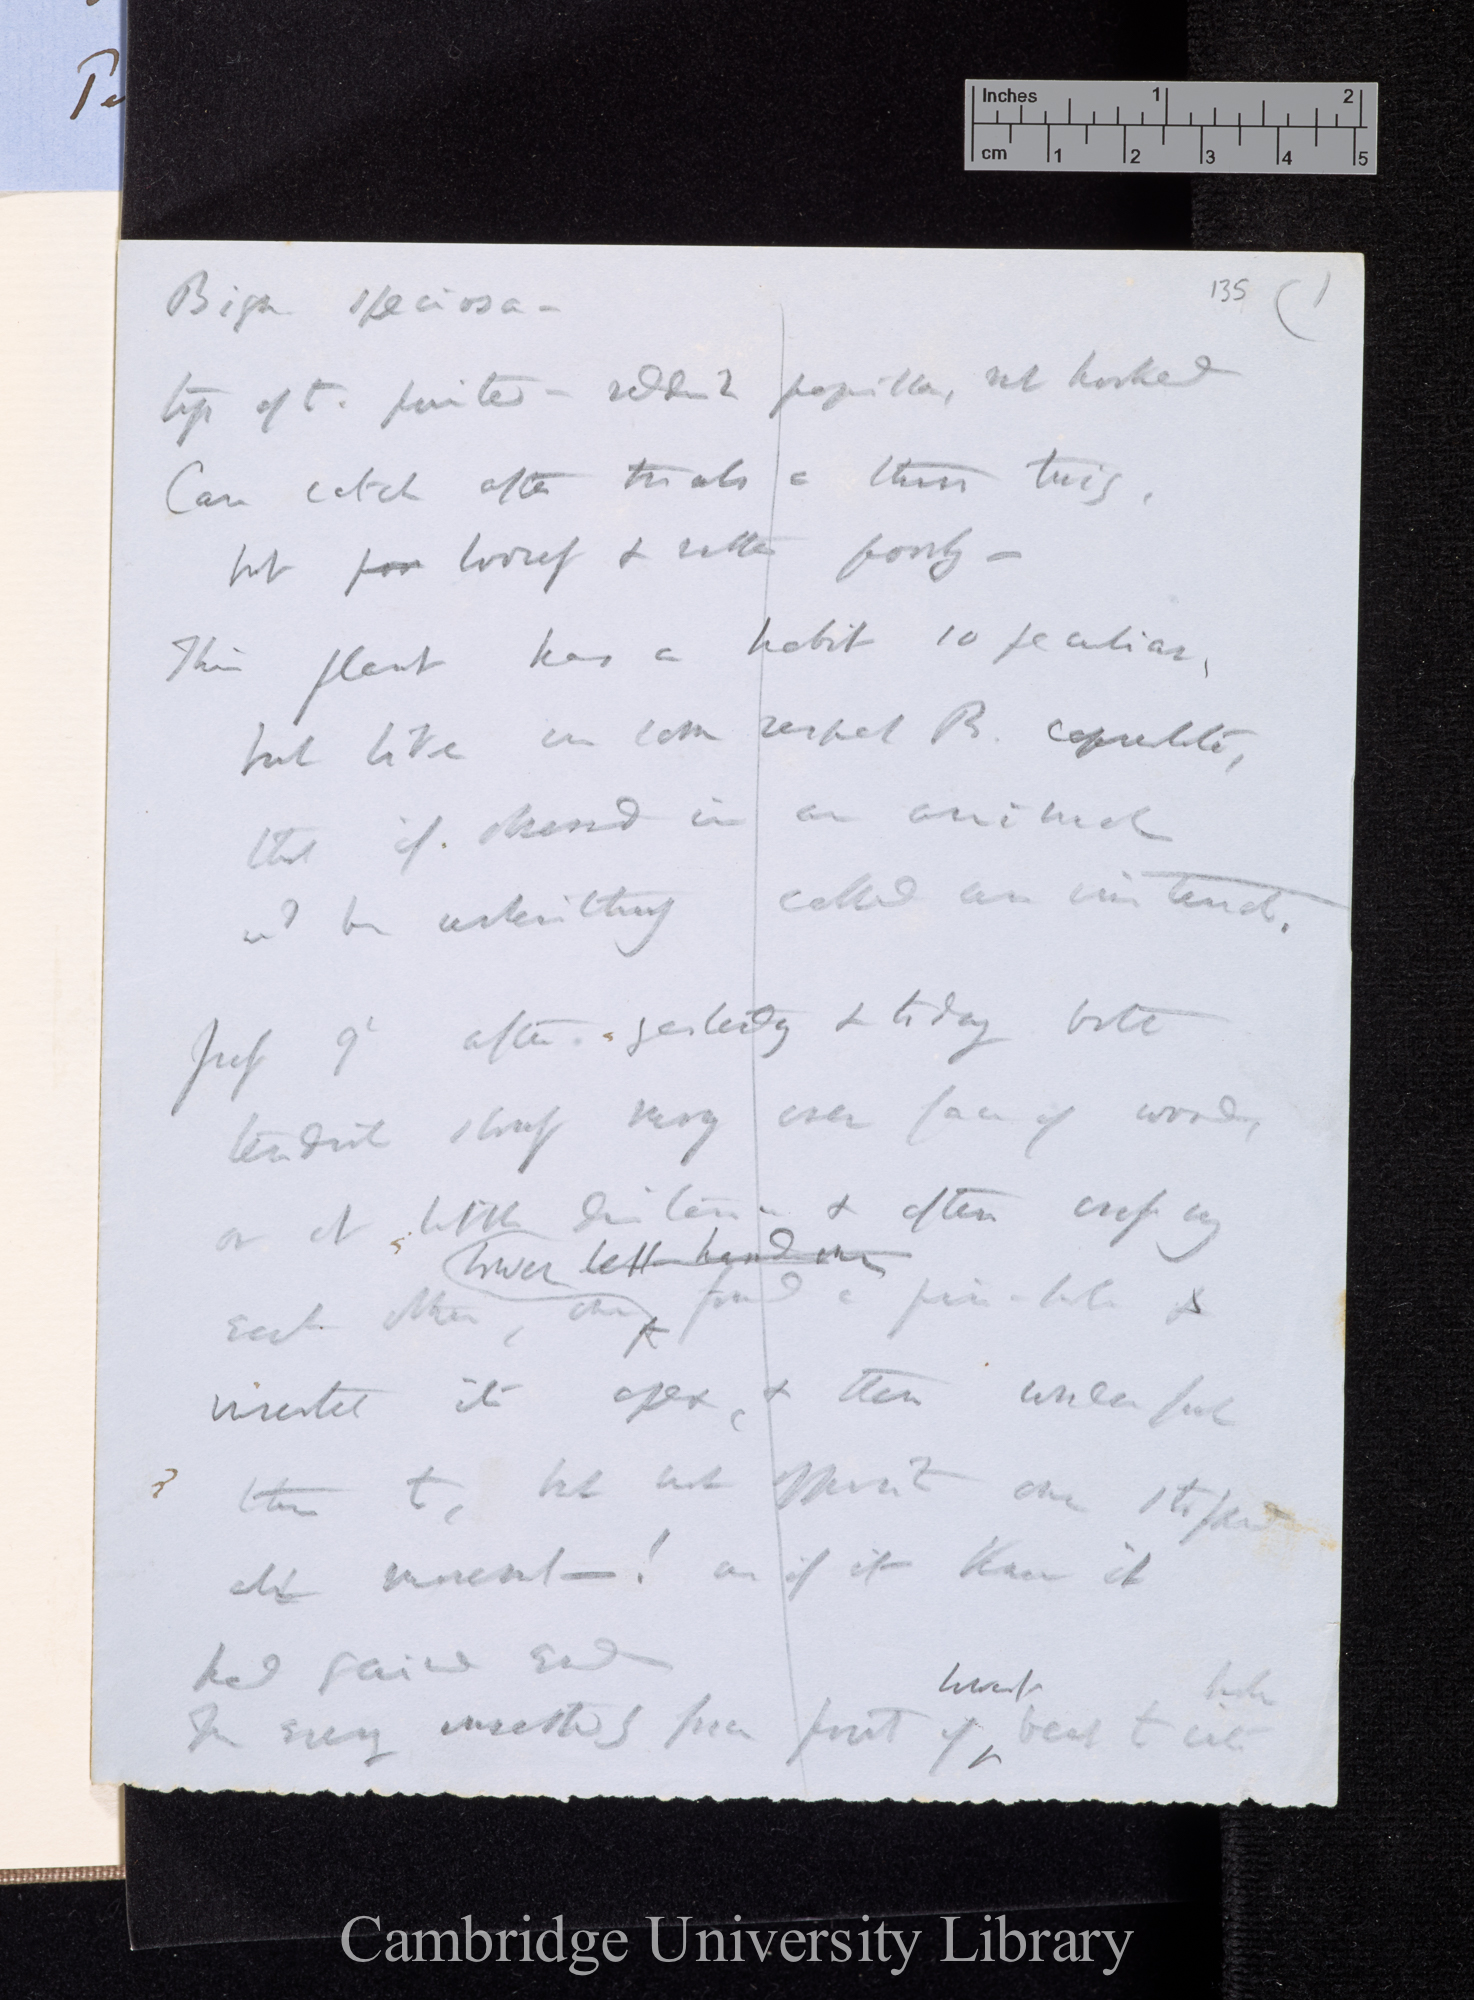 Pe
Inches 1 2
cm 1 2 3 4 5
135 (1
Bign speciosa —
tips of t. pointed — reddish papillae, not hooked
Can catch after trials a thin twig,
but poo loosely & rather poorly —
This plant has a habit so peculiar,
but like in some respect B. capreolata,
that if observed in an animal
wd be unhesitatingly called an instinct.
after yesterday & today both
tendrils slowly move over face of wood,
or at little distance & often crossing
lower left hand one
each other, one found a pin-hole &
inserted its apex, &
? but not opposite one stopped
all movement —! as if it knew it
had gained end
hook hole
For every inserting from point of bent t into
Cambridge University Library